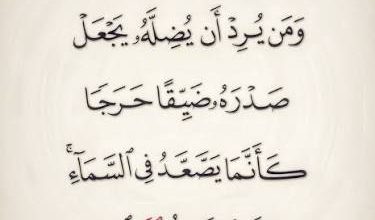 وَمَن يُرِدْ أَن يُضِلَّهُۥ يَجْعَلْ
صَدْرَهُۥ ضَيِّقًا حَرَجًا
كَأَنَّمَا يَصَّعَّدُ فِى ٱلسَّمَآءِۚ